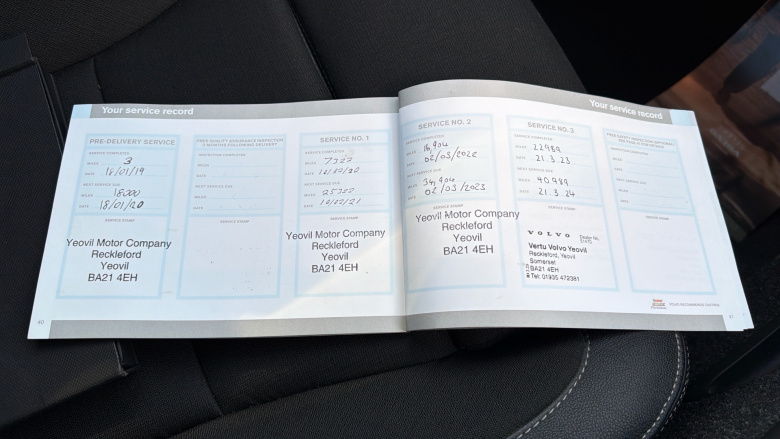 Your service record
PRE-DELIVERY SERVICE
SERVICE COMPLETED
MILES 3
DATE 18/01/19
NEXT SERVICE DUE
MILES 18000
DATE 18/01/20
SERVICE STAMP
Yeovil Motor Company
Reckleford
Yeovil
BA21 4EH
FREE QUALITY ASSURANCE INSPECTION
3 MONTHS FOLLOWING DELIVERY
INSPECTION COMPLETED
MILES
DATE
NEXT SERVICE DUE
MILES
DATE
SERVICE STAMP
SERVICE NO. 1
SERVICE COMPLETED
MILES 7322
DATE
NEXT SERVICE DUE
MILES 25322
DATE 10/12/21
SERVICE STAMP
Yeovil Motor Company
Reckleford
Yeovil
BA21 4EH
40
Your service record
SERVICE NO. 2
SERVICE COMPLETED
MILES 16,904
DATE 02/03/2022
NEXT SERVICE DUE
MILES 34,904
DATE 02/03/2023
SERVICE STAMP
Yeovil Motor Company
Reckleford
Yeovil
BA21 4EH
SERVICE NO. 3
SERVICE COMPLETED
MILES 22989
DATE 21.3.23
NEXT SERVICE DUE
MILES 40989
DATE 21.3.24
SERVICE STAMP
VOLVO
Dealer No.
Vertu Volvo Yeovil
Reckleford, Yeovil
Somerset
BA21 4EH
Tel: 01935 472381
SERVICE COMPLETED
MILES
DATE
NEXT SERVICE DUE
MILES
DATE
SERVICE STAMP
VOLVO RECOMMENDS CASTROL
41